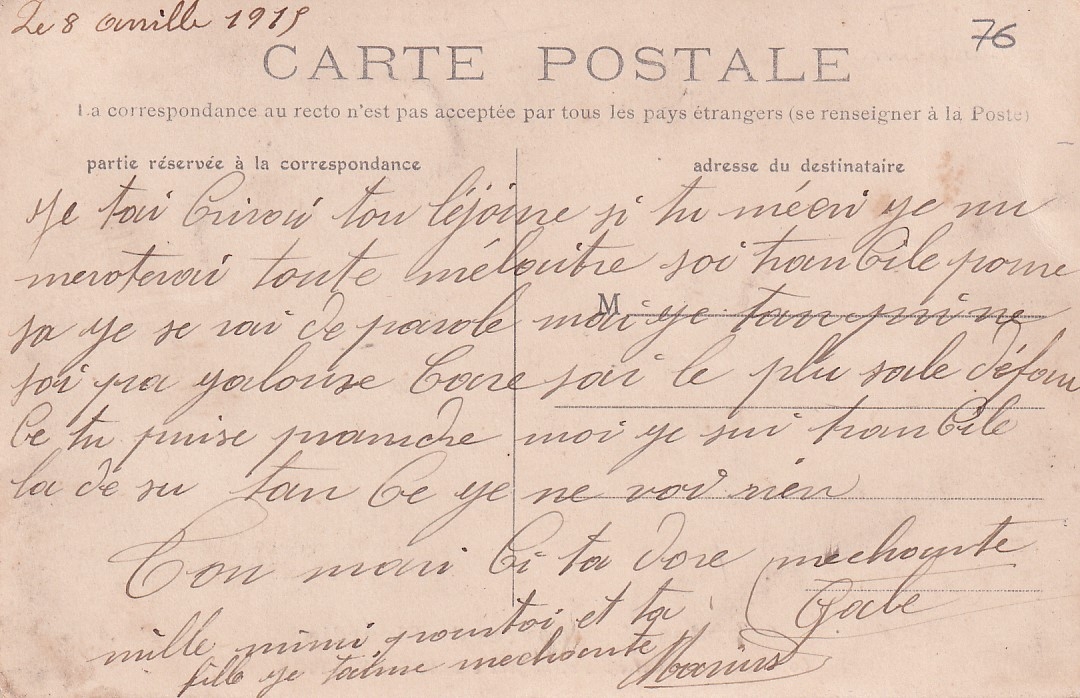 Le 8 avrille 1915
76
CARTE POSTALE
La correspondance au recto n'est pas acceptée par tous les pays étrangers (se renseigner à la Poste)
partie réservée à la correspondance
adresse du destinataire
M.
ye tai Crirai tou léjoire si tu mécri ye nu
meroterai toute mélaitre soi tranCile poure
sa ye se rai de parole moi ye
soi pa yalouse Care sai le plu sale défau
Ce tu puise prandre moi ye sui tranCile
la de su tan Ce ye ne voi rien
Ton mari Ci ta dore mechante
Gabe
mille mimi pourtoi et ta
fille ye taime mechante Marius